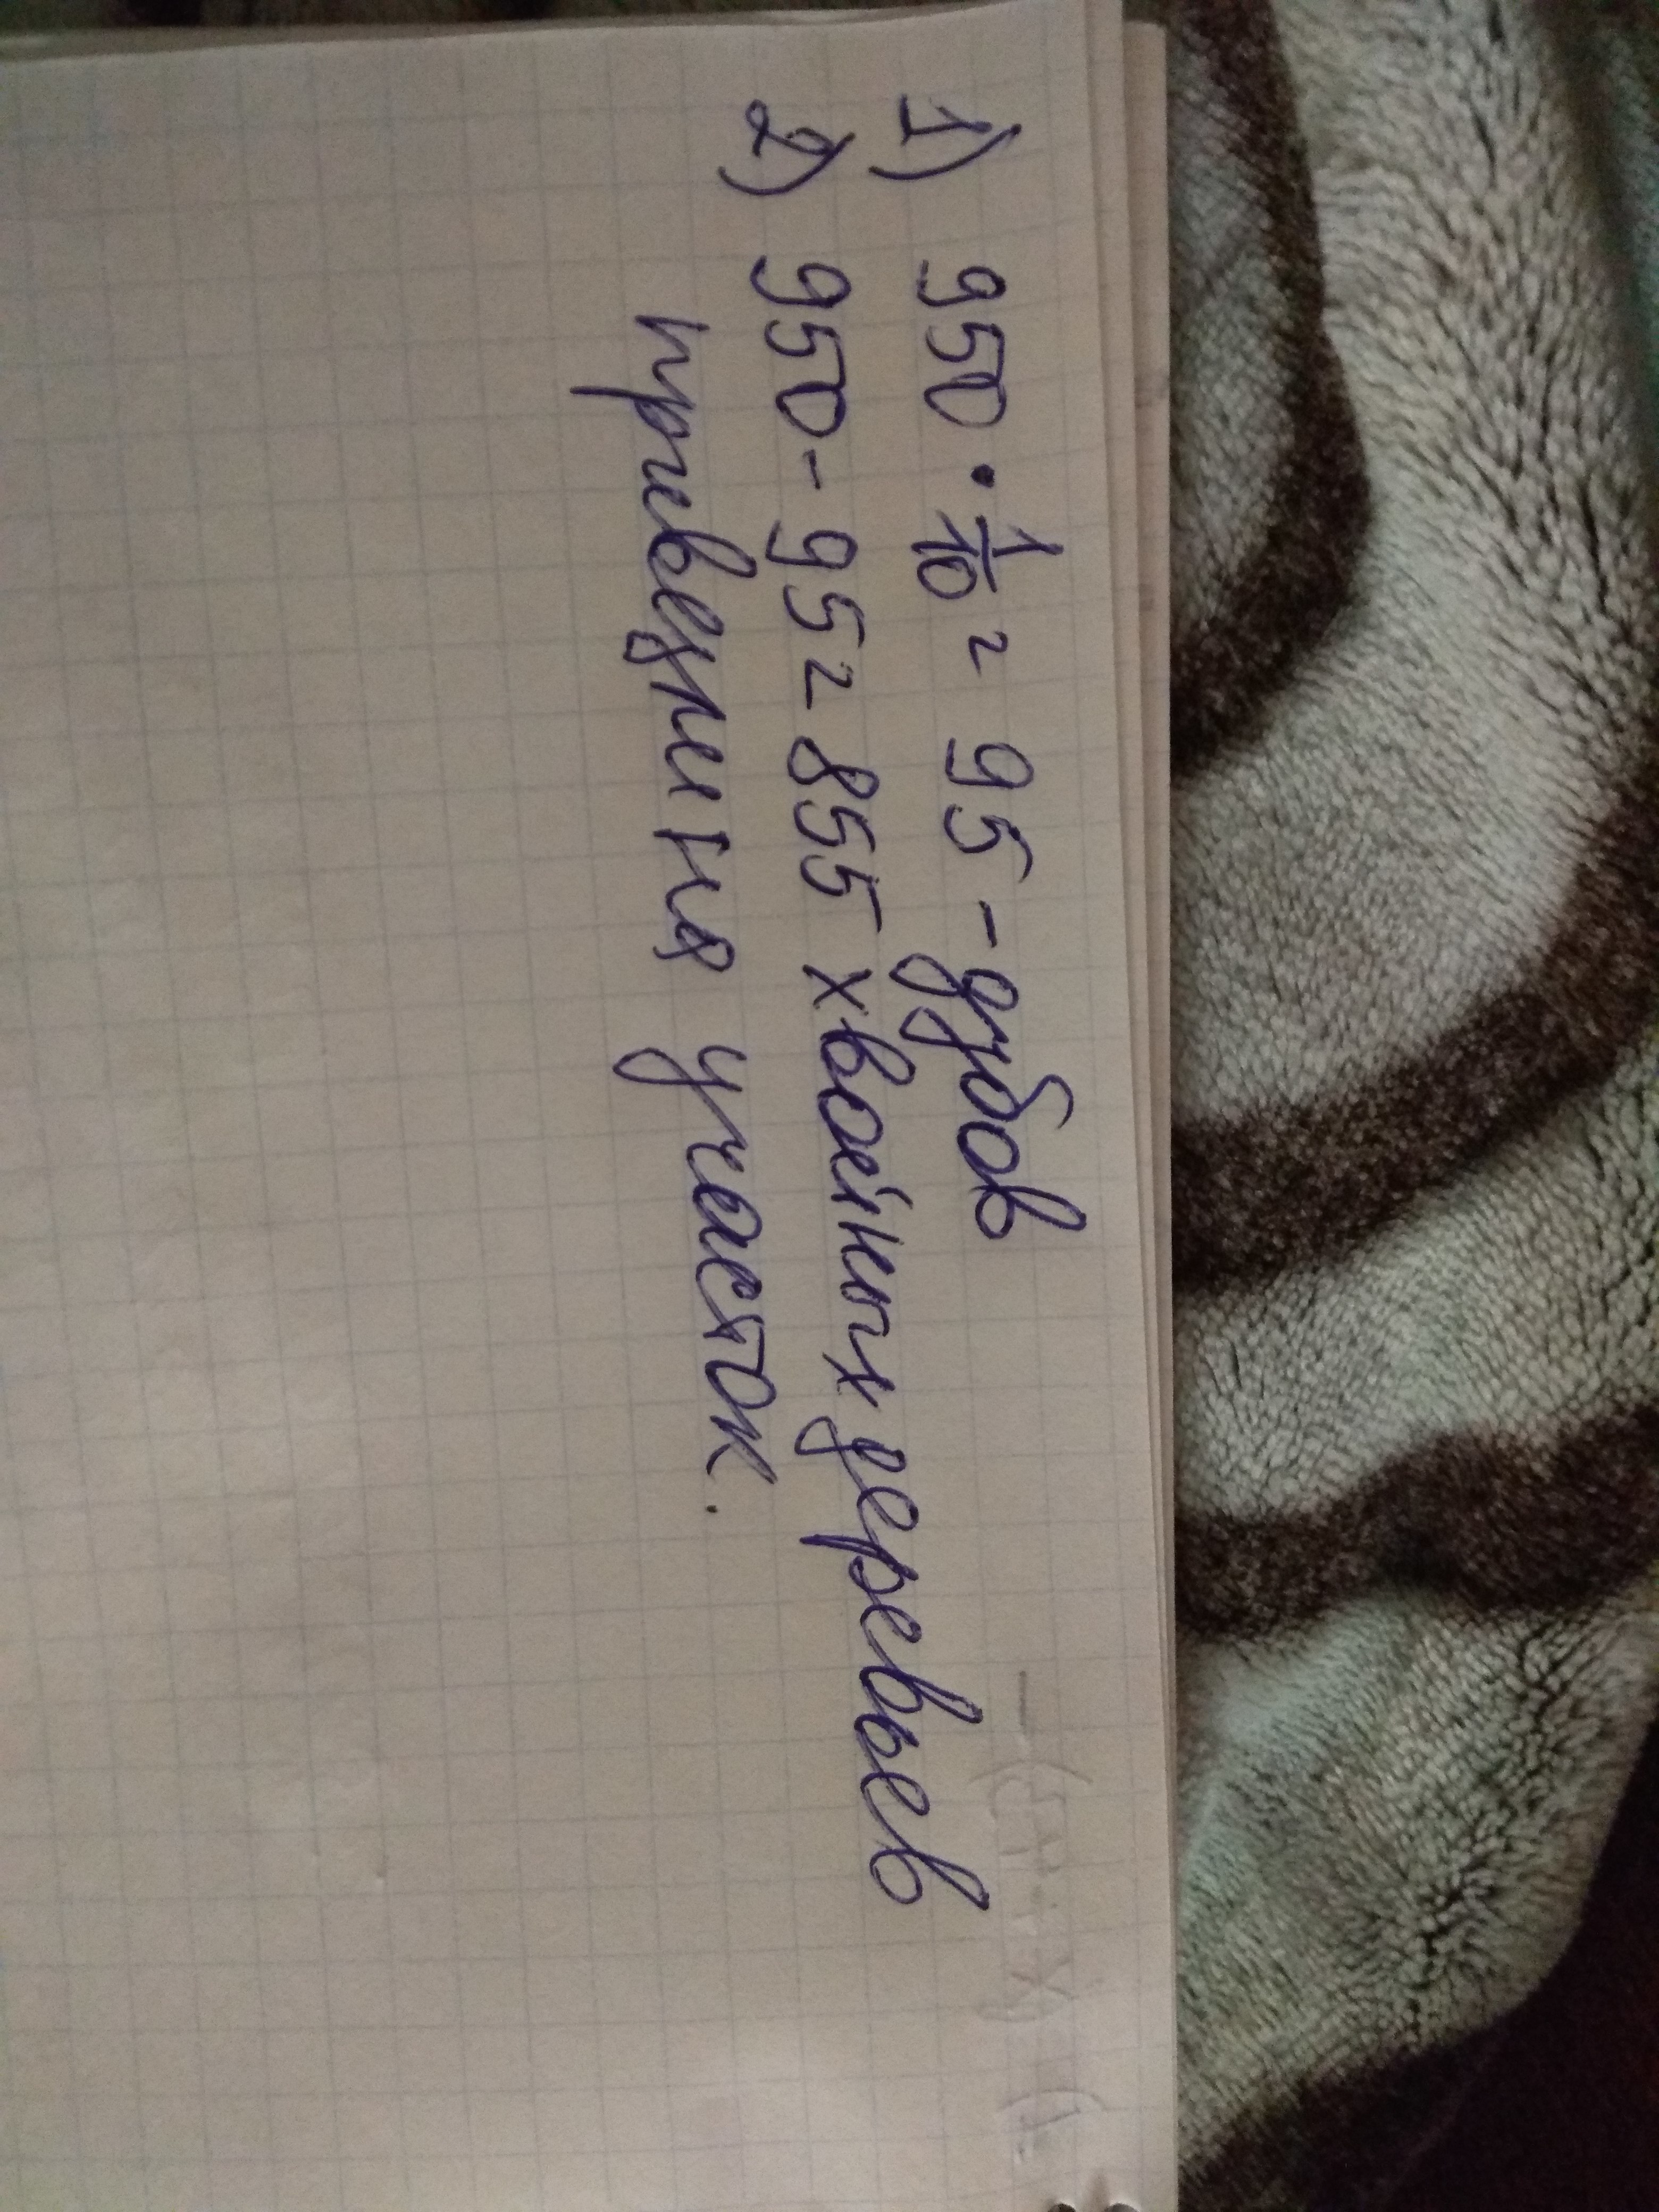 1) 950 · 1/10 = 95 - дубов
2) 950 - 95 = 855 хвойных деревьев
привезли на участок.